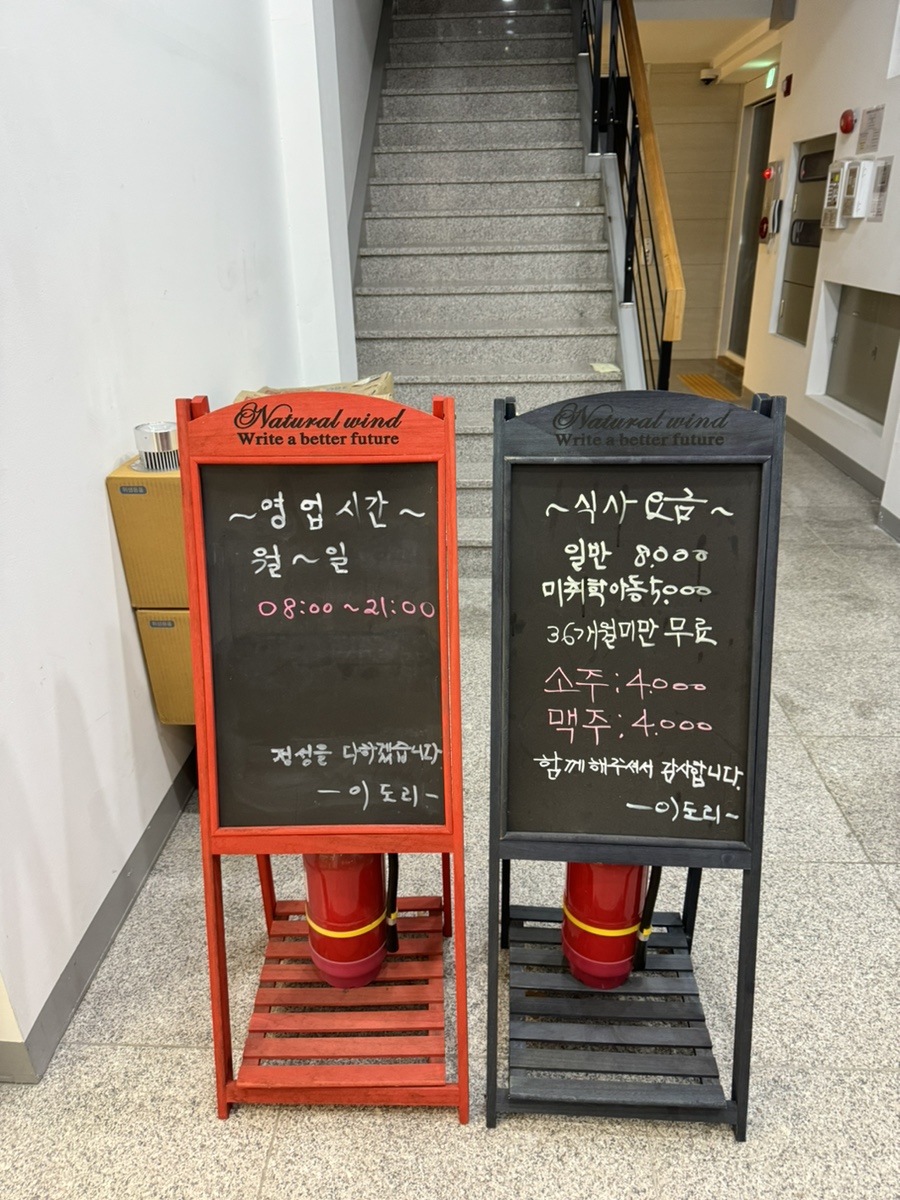 Natural wind
Write a better future
~영업시간~
월~일
08:00~21:00
정성을 다하겠습니다
-이도리-
Natural wind
Write a better future
~식사요금~
일반 8.000
미취학아동 5,000
36개월미만 무료
소주: 4.000
맥주: 4.000
함께해주셔서 감사합니다.
-이도리~